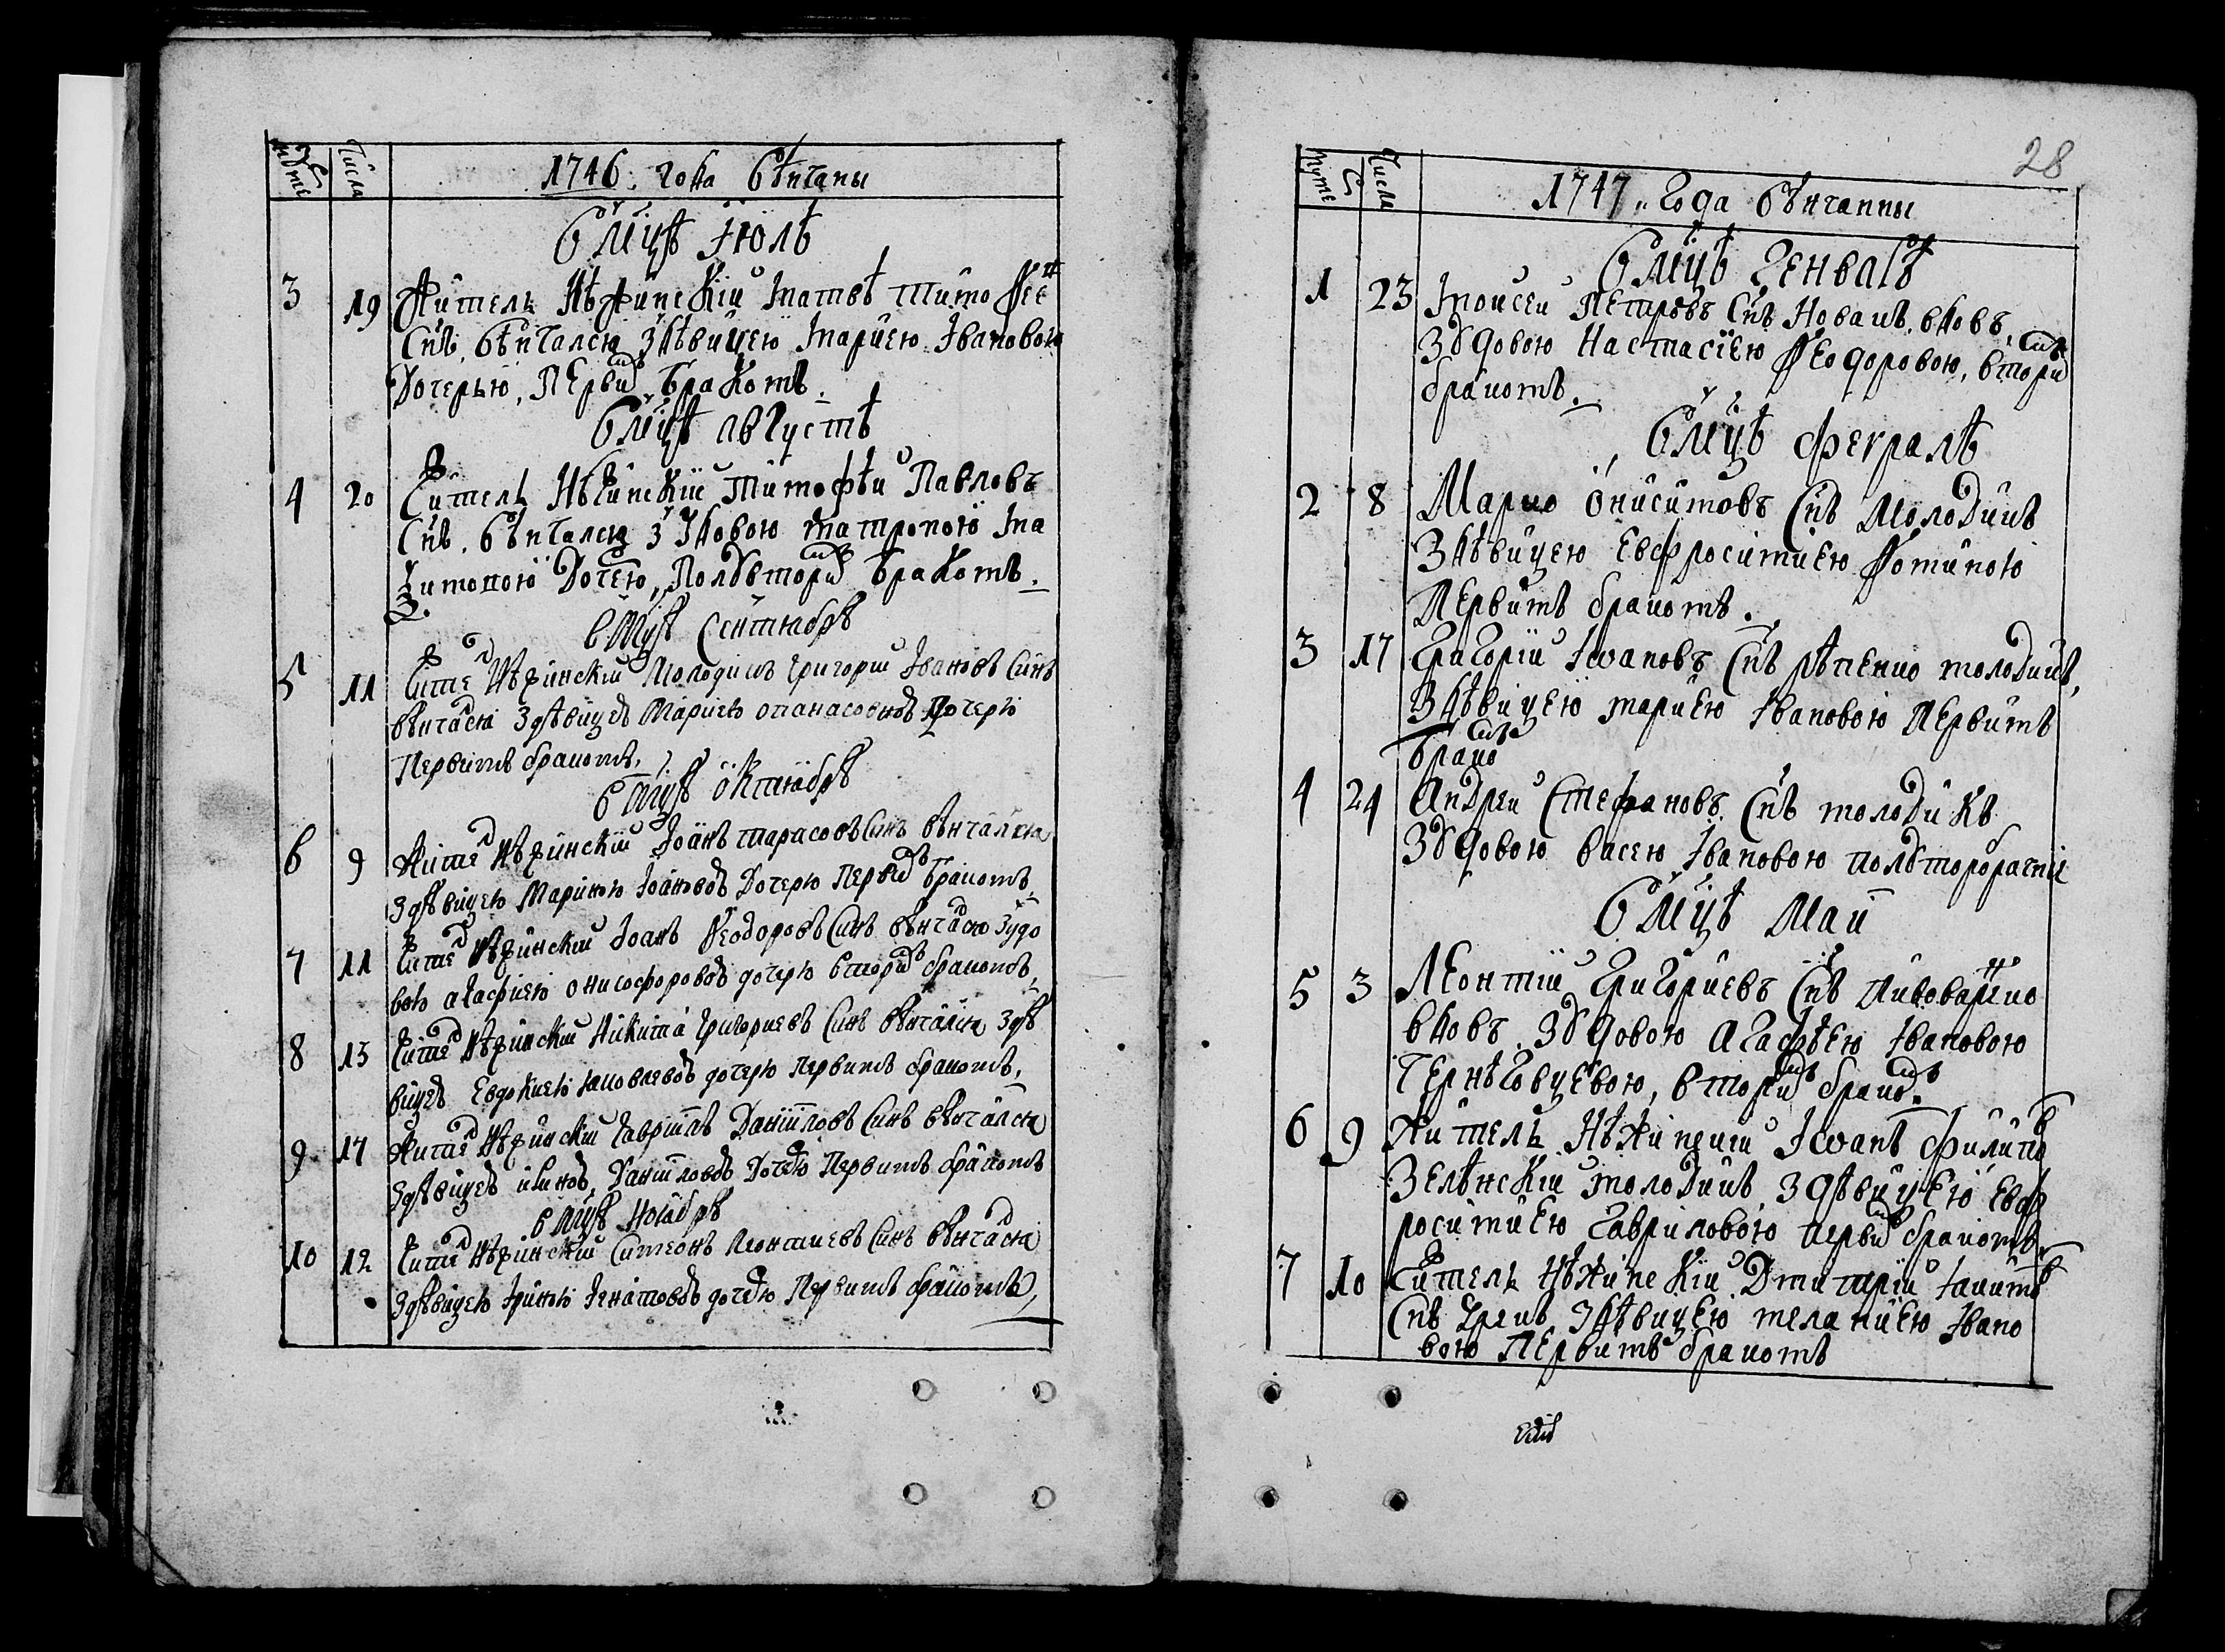 Числа
1746. года вѣнчаны
В мцѣ Июлѣ
3 19 Житель Нѣжинскїй Матвѣ Тимофее
Снъ, вѣнчался з дѣвицею Мариею Івановою
Дочерью, Первим браком.
В мцѣ августѣ
4 20 Житель Нѣжинскїй Тимофѣй Павловъ
Снъ, вѣнчался з удовою Матроною Ма
Ѯимовою Дочею, Полвторим браком.
в мцѣ Сентябрѣ
5 11 Жител Нѣжинскїй Молодик Григорий Івановъ Синъ
вѣнчался З дѣвицею Мариею опанасовною Дочерю
Первимъ бракомъ,
в мцѣ октиябрѣ
6 9 Жител Нѣжинскїй Іоанъ тарасовъ Синъ вѣнчался
З дѣвицею Мариною Іоановою Дочерю Первим бракомъ,
7 11 Жител Нѣжинскїй Іоанъ Ѳеодоровъ Синъ вѣнчался З удо
вою агафиею онисофоровою дочерю Вторим бракомъ,
8 13 Жител Нѣжинскїй Никита Григориевъ Синъ вѣнчался З дѣ
вицею Евдокиею яковлевою дочерю Первимъ бракомъ,
9 17 Жител Нѣжинскїй Гаврїилъ Данїиловъ Синъ вѣнчался
З дѣвицею Данїиловою Дочею Первимъ бракомъ
в мцѣ ноябрѣ
10 12 Жител Нѣжинскїй Симеонъ Леонтиевъ Синъ вѣнчался
З дѣвицею Іриною Игнатовою дочею Первимъ бракомъ,
28
Числа
1747 „ года вѣнчанны
В мцѣ Генварѣ
1 23 Моисей Петровъ Снъ Новакъ, вдовъ,
З вдовою Настасїею Ѳеодоровою, втори
бракомъ.
В мцѣ февралѣ
2 8 Марко Онисимовъ Снъ Молодикъ
З дѣвицею Евфросиниею Фоминою
Первимъ бракомъ.
3 17 Григорїй Іѡановъ Снъ рѣпенко молодикъ,
З дѣвицею мариею Івановою Первимъ
брако
4 24 Андрей Стефановъ Снъ молодикъ
З вдовою Васею Івановою
В мцѣ Маи
5 3 Леонтїй Григориевъ Снъ Пивоваренко
вдовъ З вдовою Агафѣею Івановою
Чернѣговцевою, втори брако.
6 9 Житель Нѣжинский Іѡанъ филипо
Зелѣнскїй молодикъ З дѣвицею Евф
росиниею Гавриловою перви бракомъ
7 10 Житель Нѣжинскїй Дмитрїй
Снъ Грекъ З дѣвицею меланиею Івано
вою Первимъ бракомъ